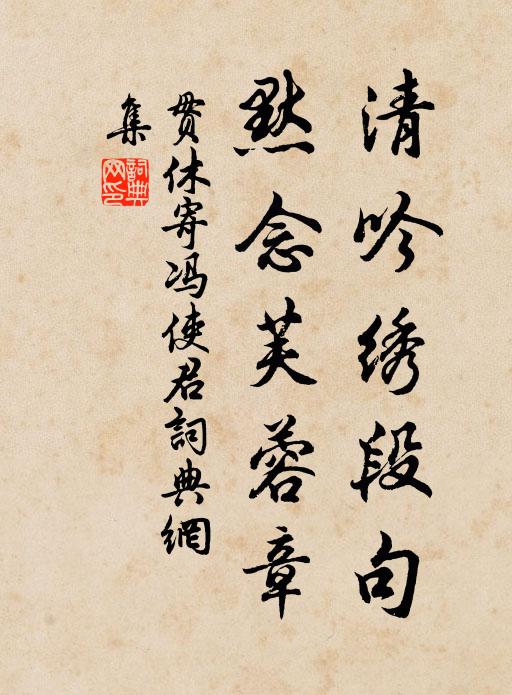 清吟绣段句
默念芙蓉章
贯休寄冯使君詞典網
集
詞典
网印